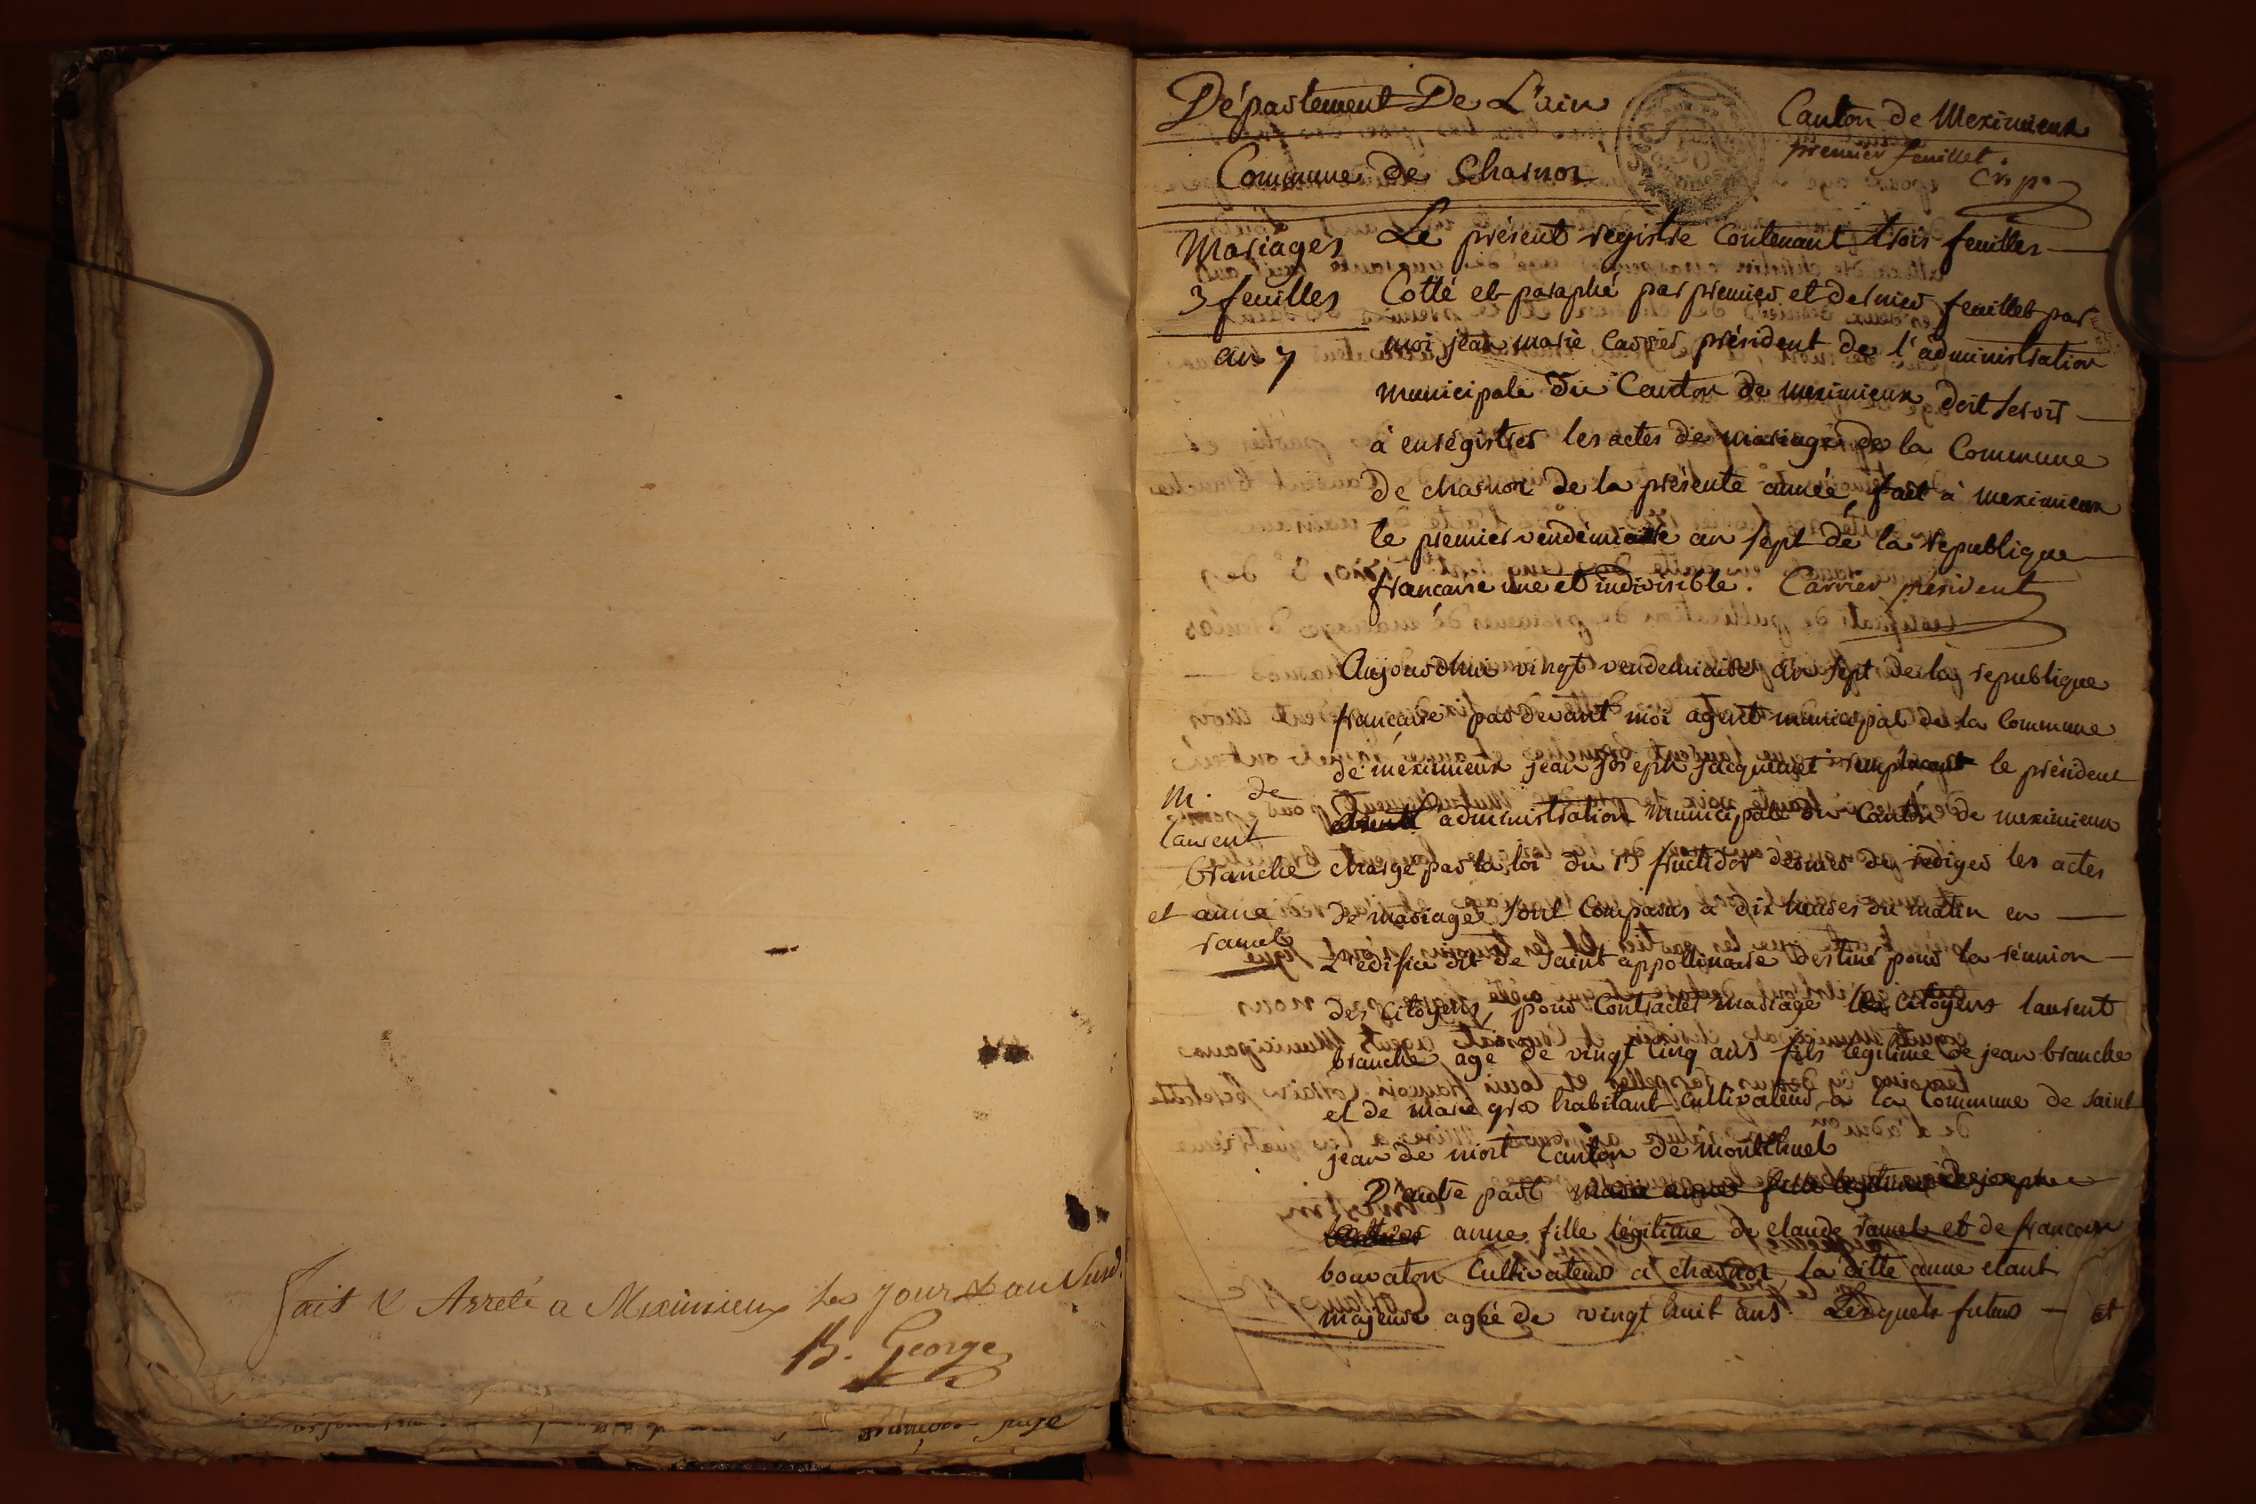 fait & Arrêté a Meximieux les jour & an susd.
B. George
Département De L'ain
Canton de Meximieux
premier feuillet.
Commune de Charnoz
Mariages
3 feuilles
an 7
Le présent registre Contenant trois feuilles
Cotté et paraphé par premier et dernier feuillet par
moi jean marie Carrier président de l'administration
municipale du Canton de meximieux doit servir
à enrégistrer les actes de mariage de la Commune
de charnoz de la présente année, fait à meximieux
le premier vendémiaire an sept de la republique
francaise une et indivisible. Carrier président
Aujourdhui vingt vendemiaire an sept de la republique
francaise pardevant moi agent municipal de la Commune
de meximieux jean joseph jacquemet remplacant le président
de administration municipale du Canton de meximieux
chargé par la loi du 13 fructidor dernier de rediger les actes
de mariage sont Comparus a dix heures du matin en
L'edifice dit de Saint appollinaire destiné pour la réunion
des Citoyens, pour Contracter mariage les Citoyens laurent
branche agé de vingt Cinq ans fils légitime de jean branche
et de marie gros habitant Cultivateur a la Commune de Saint
jean de niost Canton de montlhuel
D'autre part marie anne fille légitime de joseph
anne fille légitime de claude ramel et de francoise
bouvaton Cultivateur a charnoz, la ditte anne etant
majeure agée de vingt huit ans. Lesquels futurs et
m. de
laurent
branche
et anne
ramel